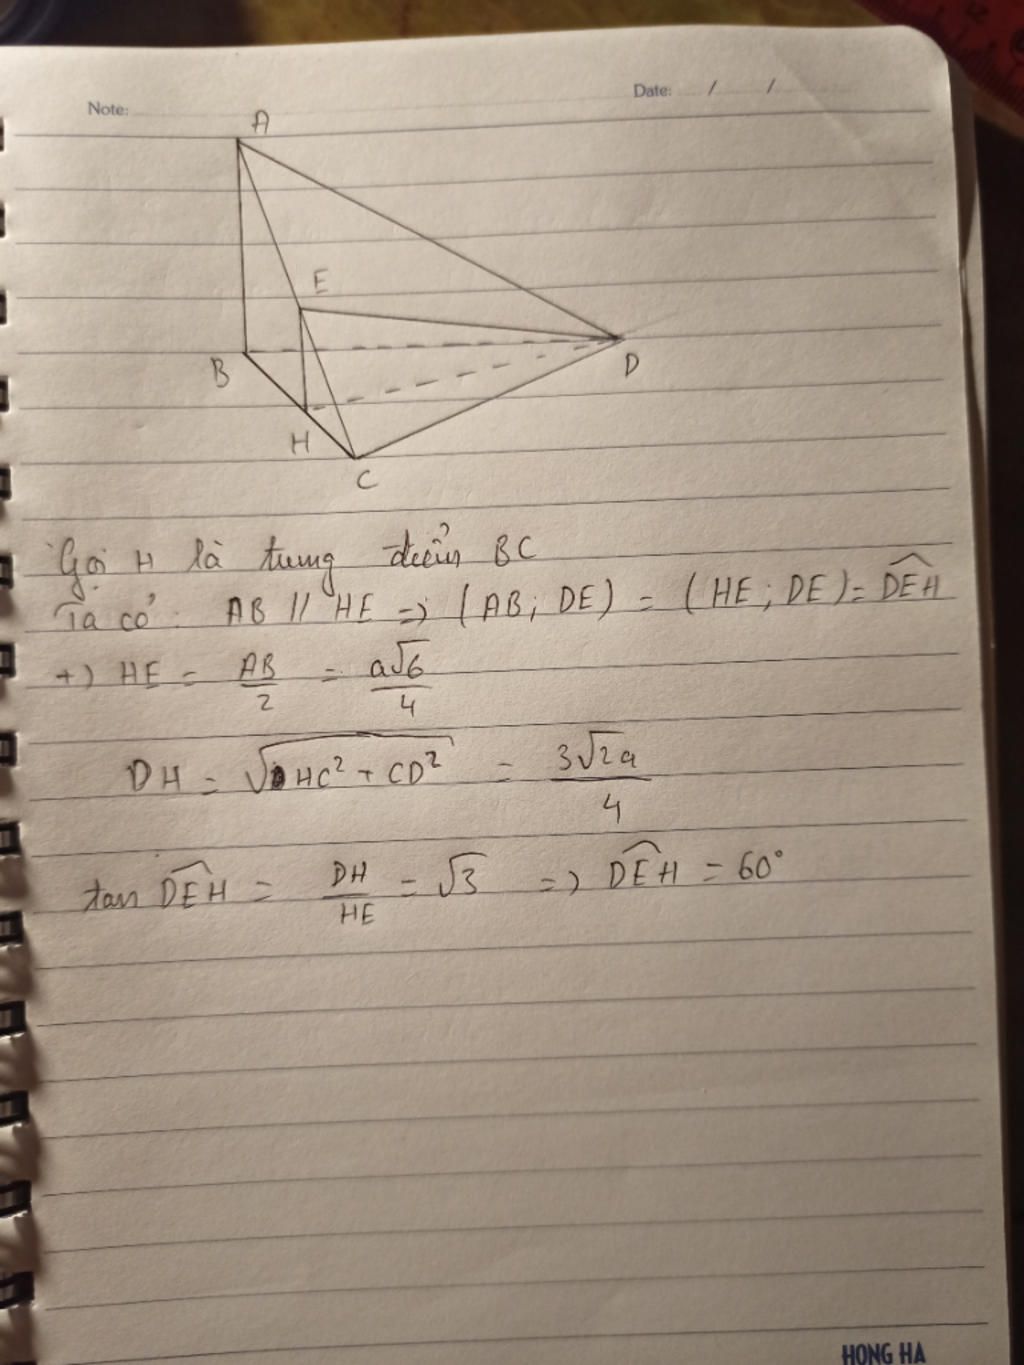 Note:
Date: / /
A
E
B
D
H
C
Gọi H là trung điểm BC
Ta có: AB // HE => (AB; DE) = (HE; DE) = \widehat{DEH}
+) HE = \frac{AB}{2} = \frac{a\sqrt{6}}{4}
DH = \sqrt{HC^2 + CD^2} = \frac{3\sqrt{2}a}{4}
tan \widehat{DEH} = \frac{DH}{HE} = \sqrt{3} => \widehat{DEH} = 60°
HONG HA